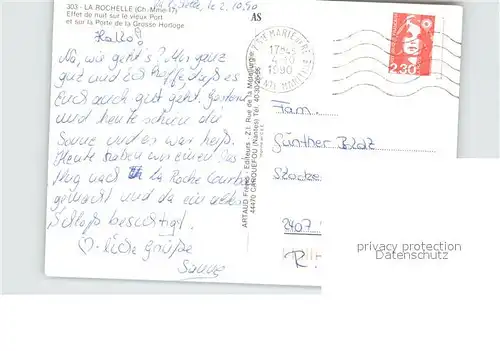 303 - LA ROCHELLE (Ch.-Mme-17)
Effet de nuit sur le vieux Port
et sur la Porte de la Grosse Horloge
2.10.90
AS
Hallo!
Na, wie geht's? Mir ganz
gut und ich hoffe daß es
Euch auch gut geht. Gestern
und heute schien die
Sonne und es war heiß.
Heute haben wir einen Aus
flug nach La Roche Courbon
gemacht und da ein altes
Schloß besichtigt.
liche Grüße
ARTAUD Frères - Editeurs - Z.I. Rue de la Métallurgie
44470 CARQUEFOU (Nantes) Tél. 40-30-26-56
17H
4-10
1990
MARITIME
2,30
Fam.
Günther
2407
R.
privacy protection
oldthing.com